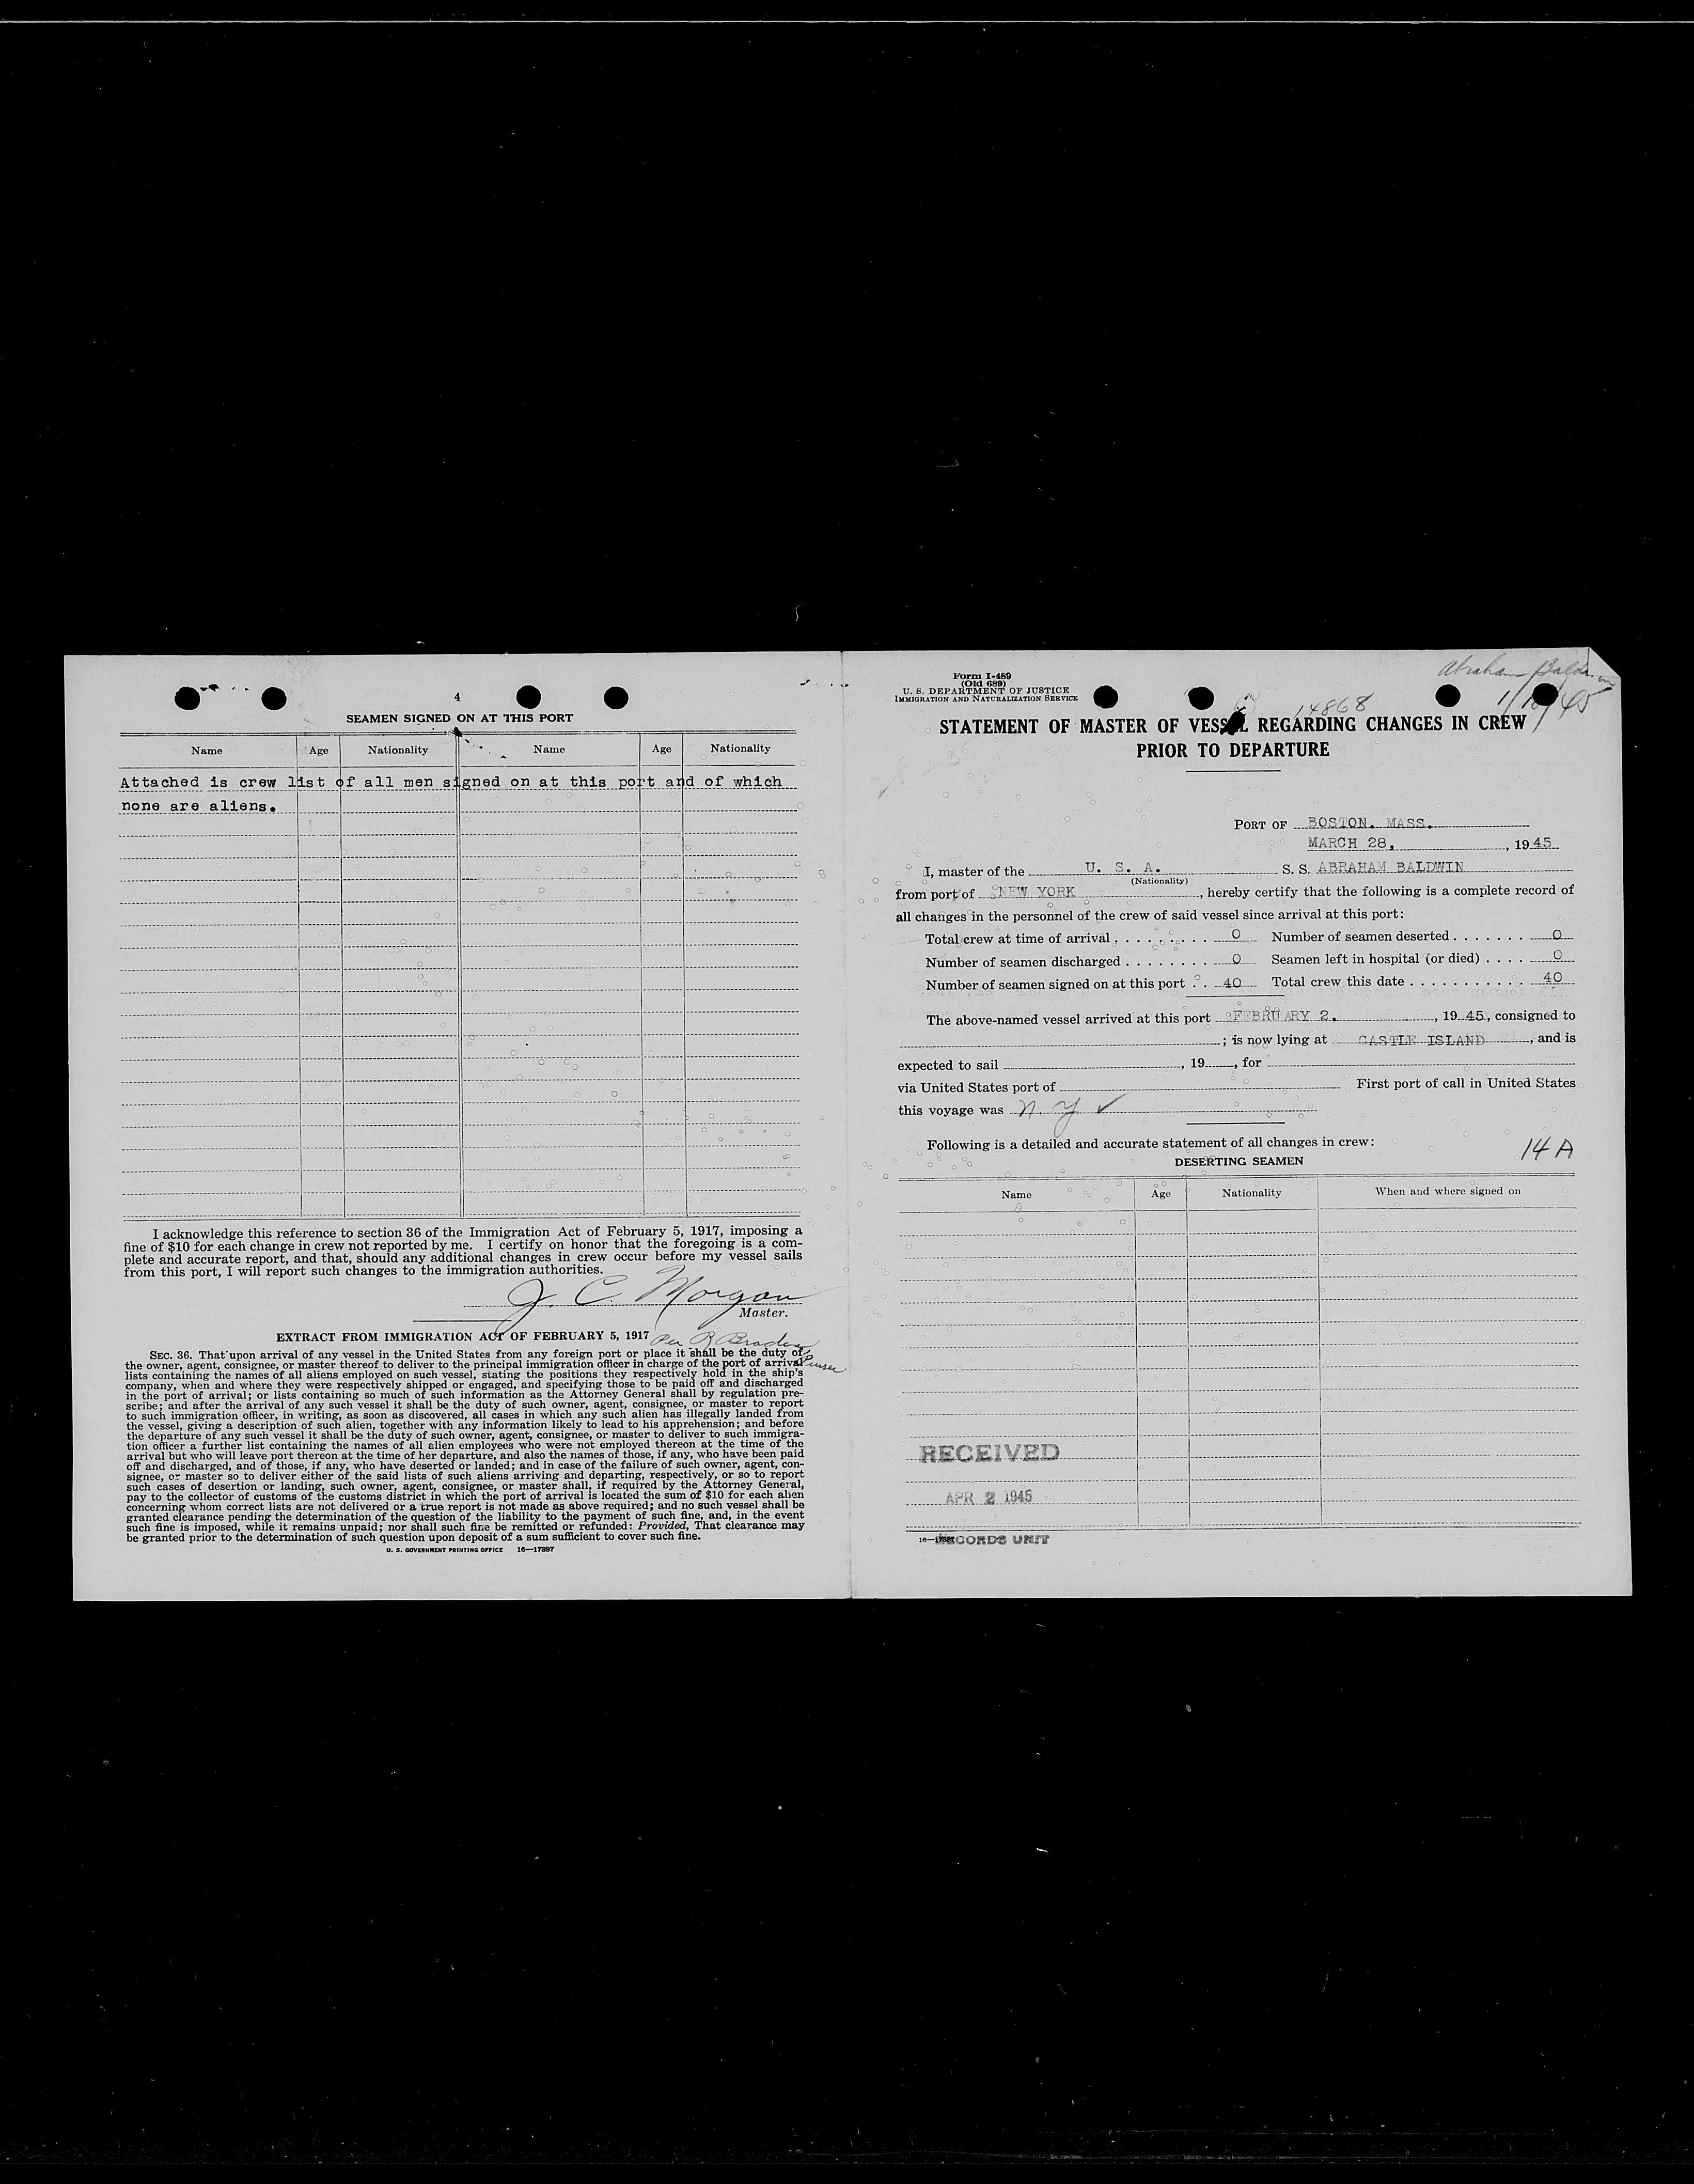 4
SEAMEN SIGNED ON AT THIS PORT
Name Age Nationality Name Age Nationality
Attached is crew list of all men signed on at this port and of which
none are aliens.
I acknowledge this reference to section 36 of the Immigration Act of February 5, 1917, imposing a
fine of $10 for each change in crew not reported by me. I certify on honor that the foregoing is a com-
plete and accurate report, and that, should any additional changes in crew occur before my vessel sails
from this port, I will report such changes to the immigration authorities.
J. C. Morgan
Master.
EXTRACT FROM IMMIGRATION ACT OF FEBRUARY 5, 1917
Per R Braden
Purser
SEC. 36. That upon arrival of any vessel in the United States from any foreign port or place it shall be the duty of
the owner, agent, consignee, or master thereof to deliver to the principal immigration officer in charge of the port of arrival
lists containing the names of all aliens employed on such vessel, stating the positions they respectively hold in the ship's
company, when and where they were respectively shipped or engaged, and specifying those to be paid off and discharged
in the port of arrival; or lists containing so much of such information as the Attorney General shall by regulation pre-
scribe; and after the arrival of any such vessel it shall be the duty of such owner, agent, consignee, or master to report
to such immigration officer, in writing, as soon as discovered, all cases in which any such alien has illegally landed from
the vessel, giving a description of such alien, together with any information likely to lead to his apprehension; and before
the departure of any such vessel it shall be the duty of such owner, agent, consignee, or master to deliver to such immigra-
tion officer a further list containing the names of all alien employees who were not employed thereon at the time of the
arrival but who will leave port thereon at the time of her departure, and also the names of those, if any, who have been paid
off and discharged, and of those, if any, who have deserted or landed; and in case of the failure of such owner, agent, con-
signee, or master so to deliver either of the said lists of such aliens arriving and departing, respectively, or so to report
such cases of desertion or landing, such owner, agent, consignee, or master shall, if required by the Attorney General,
pay to the collector of customs of the customs district in which the port of arrival is located the sum of $10 for each alien
concerning whom correct lists are not delivered or a true report is not made as above required; and no such vessel shall be
granted clearance pending the determination of the question of the liability to the payment of such fine, and, in the event
such fine is imposed, while it remains unpaid; nor shall such fine be remitted or refunded: Provided, That clearance may
be granted prior to the determination of such question upon deposit of a sum sufficient to cover such fine.
U. S. GOVERNMENT PRINTING OFFICE 16—17397
Form I-489
(Old 689)
U. S. DEPARTMENT OF JUSTICE
IMMIGRATION AND NATURALIZATION SERVICE
Abraham Baldwin
14868
STATEMENT OF MASTER OF VESSEL REGARDING CHANGES IN CREW
PRIOR TO DEPARTURE
PORT OF BOSTON, MASS.
MARCH 28, , 1945
I, master of the U. S. A. S. S. ABRAHAM BALDWIN
(Nationality)
from port of NEW YORK , hereby certify that the following is a complete record of
all changes in the personnel of the crew of said vessel since arrival at this port:
Total crew at time of arrival 0 Number of seamen deserted 0
Number of seamen discharged 0 Seamen left in hospital (or died) 0
Number of seamen signed on at this port 40 Total crew this date 40
The above-named vessel arrived at this port FEBRUARY 2. , 1945, consigned to
; is now lying at CASTLE ISLAND , and is
expected to sail , 19 , for
via United States port of First port of call in United States
this voyage was N. Y ✓
Following is a detailed and accurate statement of all changes in crew:
14 A
DESERTING SEAMEN
Name Age Nationality When and where signed on
RECEIVED
APR 2 1945
RECORDS UNIT